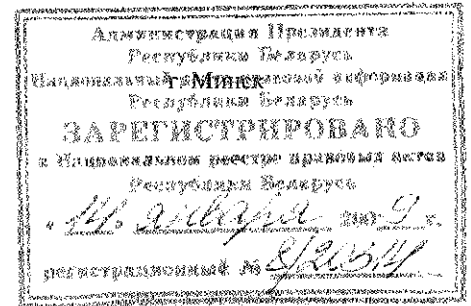 Администрация Президента
Республики Беларусь
Национальный правовой информации
г. Минск
Республики Беларусь
ЗАРЕГИСТРИРОВАНО
в Национальном реестре правовых актов
Республики Беларусь
" 14 " января 2009 г.
регистрационный №